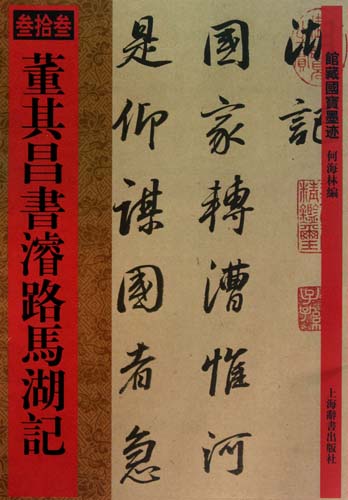 叁拾叁
董其昌書濬路馬湖記
館藏國寶墨迹
何海林編
上海辭書出版社
湖記
國家轉漕惟河
是仰謀國者急